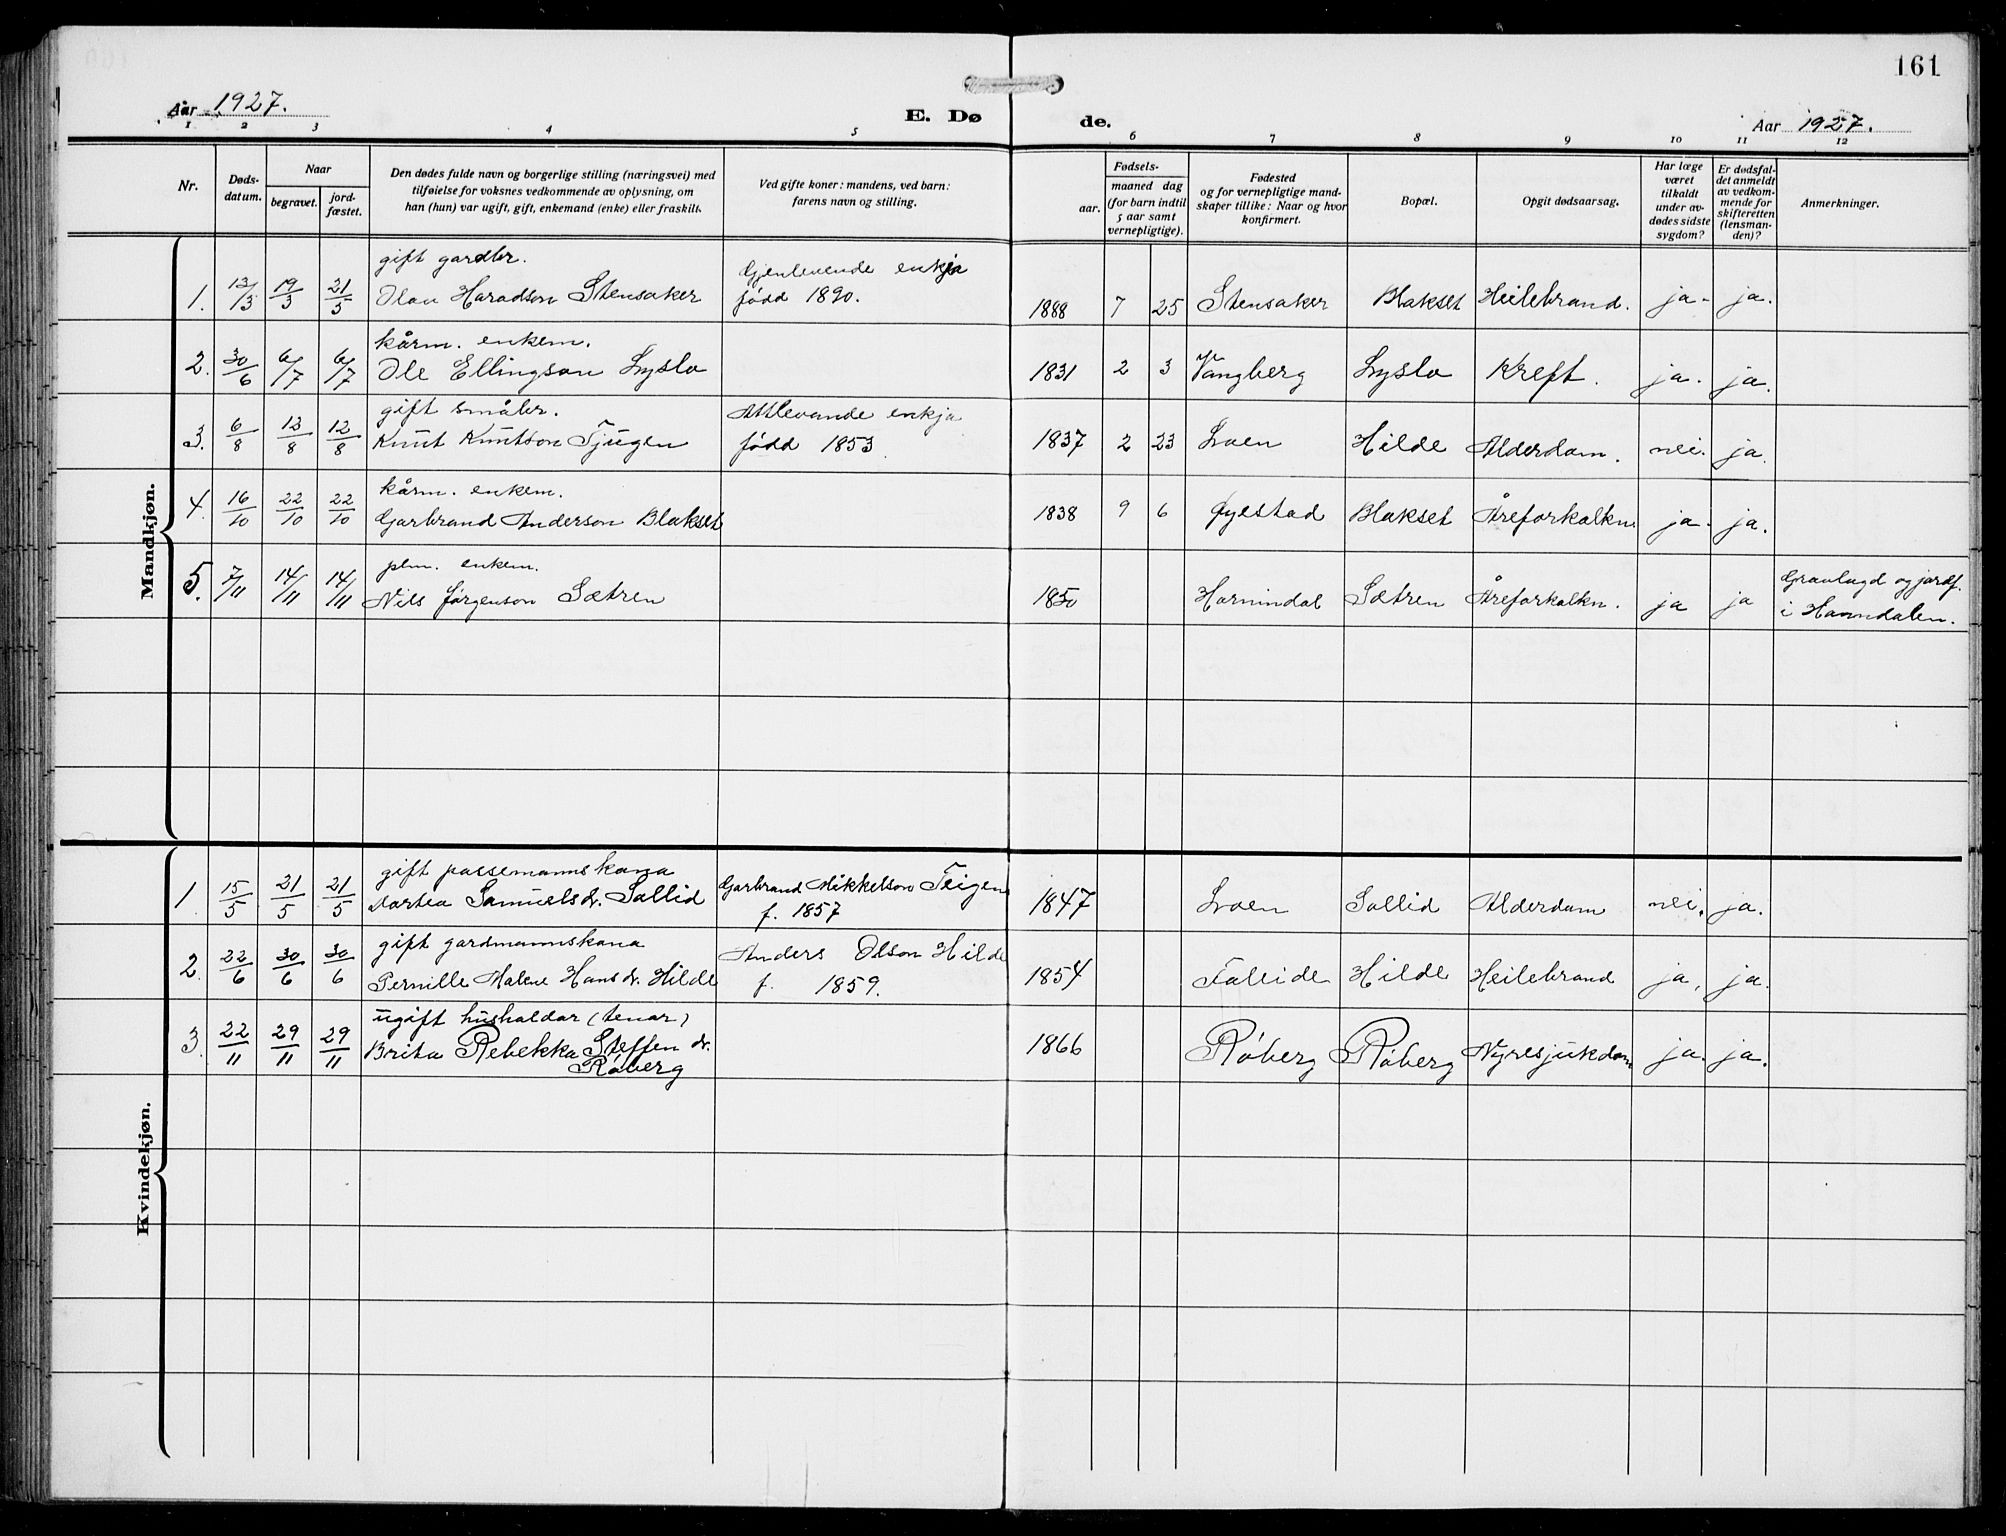 161
Aar 1927.
E. Døde.
Aar 1927.
1 2 3 4 5 6 7 8 9 10 11 12
Nr.
Døds-
datum.
Naar
begravet.
jord-
fæstet.
Den dødes fulde navn og borgerlige stilling (næringsvei) med
tilføielse for voksnes vedkommende av oplysning, om
han (hun) var ugift, gift, enkemand (enke) eller fraskilt.
Ved gifte koner: mandens, ved barn:
farens navn og stilling.
Fødsels-
aar.
maaned dag
(for barn indtil
5 aar samt
vernepligtige).
Fødested
og for vernepligtige mand-
skaper tillike: Naar og hvor
konfirmert.
Bopæl.
Opgit dødsaarsag.
Har læge
været
tilkaldt
under av-
dødes sidste
sygdom?
Er dødsfal-
det anmeldt
av vedkom-
mende for
skifteretten
(lensman-
den)?
Anmerkninger.
Mandkjøn.
gift gardbr. Gjenlevende enkja
1. 13/3 19/3 21/5 Olav Haradson Stensaker fødd 1890. 1888 7 25 Stensaker Blakset Heilebrand. ja. ja.
kårm. enkem.
2. 30/6 6/7 6/7 Ole Ellingson Lyslo 1831 2 3 Vangberg Lyslo Kreft. ja. ja.
gift småbr. Attlevande enkja
3. 6/8 12/8 12/8 Knut Knutson Tjugen fødd 1853. 1837 2 23 Loen Hilde Alderdom. nei. ja.
kårm. enkem.
4. 16/10 22/10 22/10 Garbrand Anderson Blakset 1838 9 6 Øyestad Blakset Åreforkalkn. ja. ja.
plm. enkem. Gravlagd og jordf.
5. 7/11 14/11 14/11 Nils Jørgenson Sætren 1850 Hornindal Sætren Åreforkalkn. ja ja i Horndalen.
Kvindekjøn.
gift passemannskona
1. 15/5 21/5 21/5 Dortea Samuelsdr. Sollid Garbrand Mikkelson Teigen f. 1857 1847 Loen Sollid Alderdom nei. ja.
gift gardmannskona
2. 22/6 30/6 30/6 Pernille Malene Hansdr. Hilde Anders Olson Hilde f. 1859. 1854 Folleide Hilde Heilebrand ja. ja.
ugift hushaldar (tenar)
3. 22/11 29/11 29/11 Brita Rebekka Steffen dr. 1866 Røberg Røberg Nyresjukdom ja. ja.
Røberg